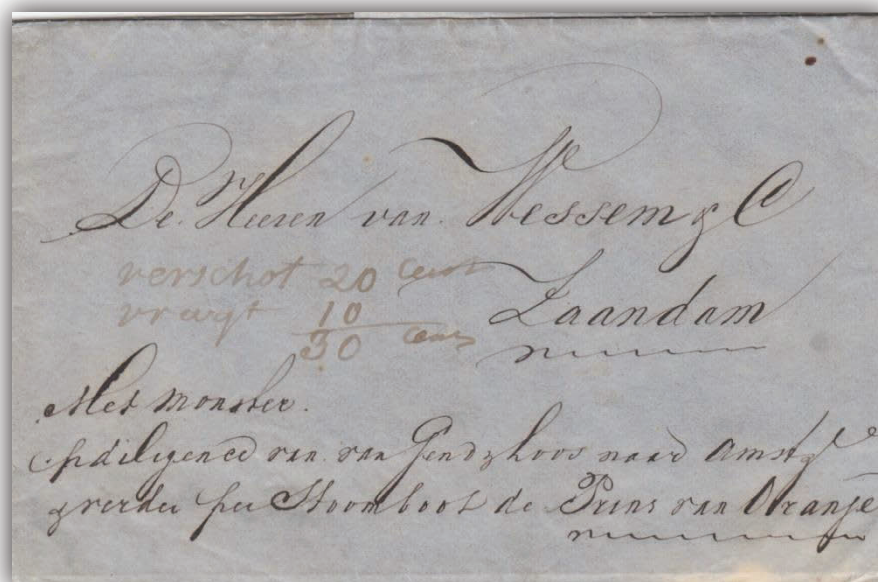 De Heeren van Wessem & Co
verschot 20 Cent
vragt 10
Zaandam
30 Cents
Met monster.
p diligence van van Gend & Loos naar Amstm
& verder per Stoomboot de Prins van Oranje